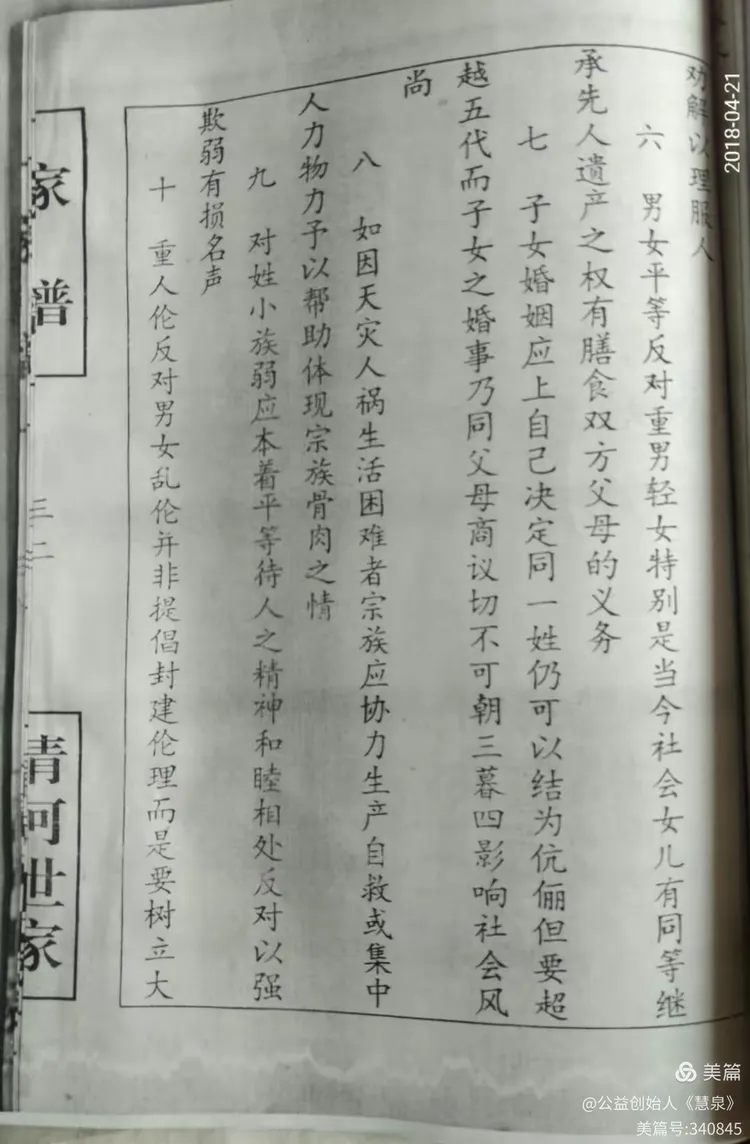 劝解以理服人
六 男女平等反对重男轻女特别是当今社会女儿有同等继
承先人遗产之权有膳食双方父母的义务
七 子女婚姻应上自己决定同一姓仍可以结为伉俪但要超
越五代而子女之婚事乃同父母商议切不可朝三暮四影响社会风
尚
八 如因天灾人祸生活困难者宗族应协力生产自救或集中
人力物力予以帮助体现宗族骨肉之情
九 对姓小族弱应本着平等待人之精神和睦相处反对以强
欺弱有损名声
十 重人伦反对男女乱伦并非提倡封建伦理而是要树立大
家谱
三二
清河世家
2018-04-21
美篇
@公益创始人《慧泉》
美篇号:340845